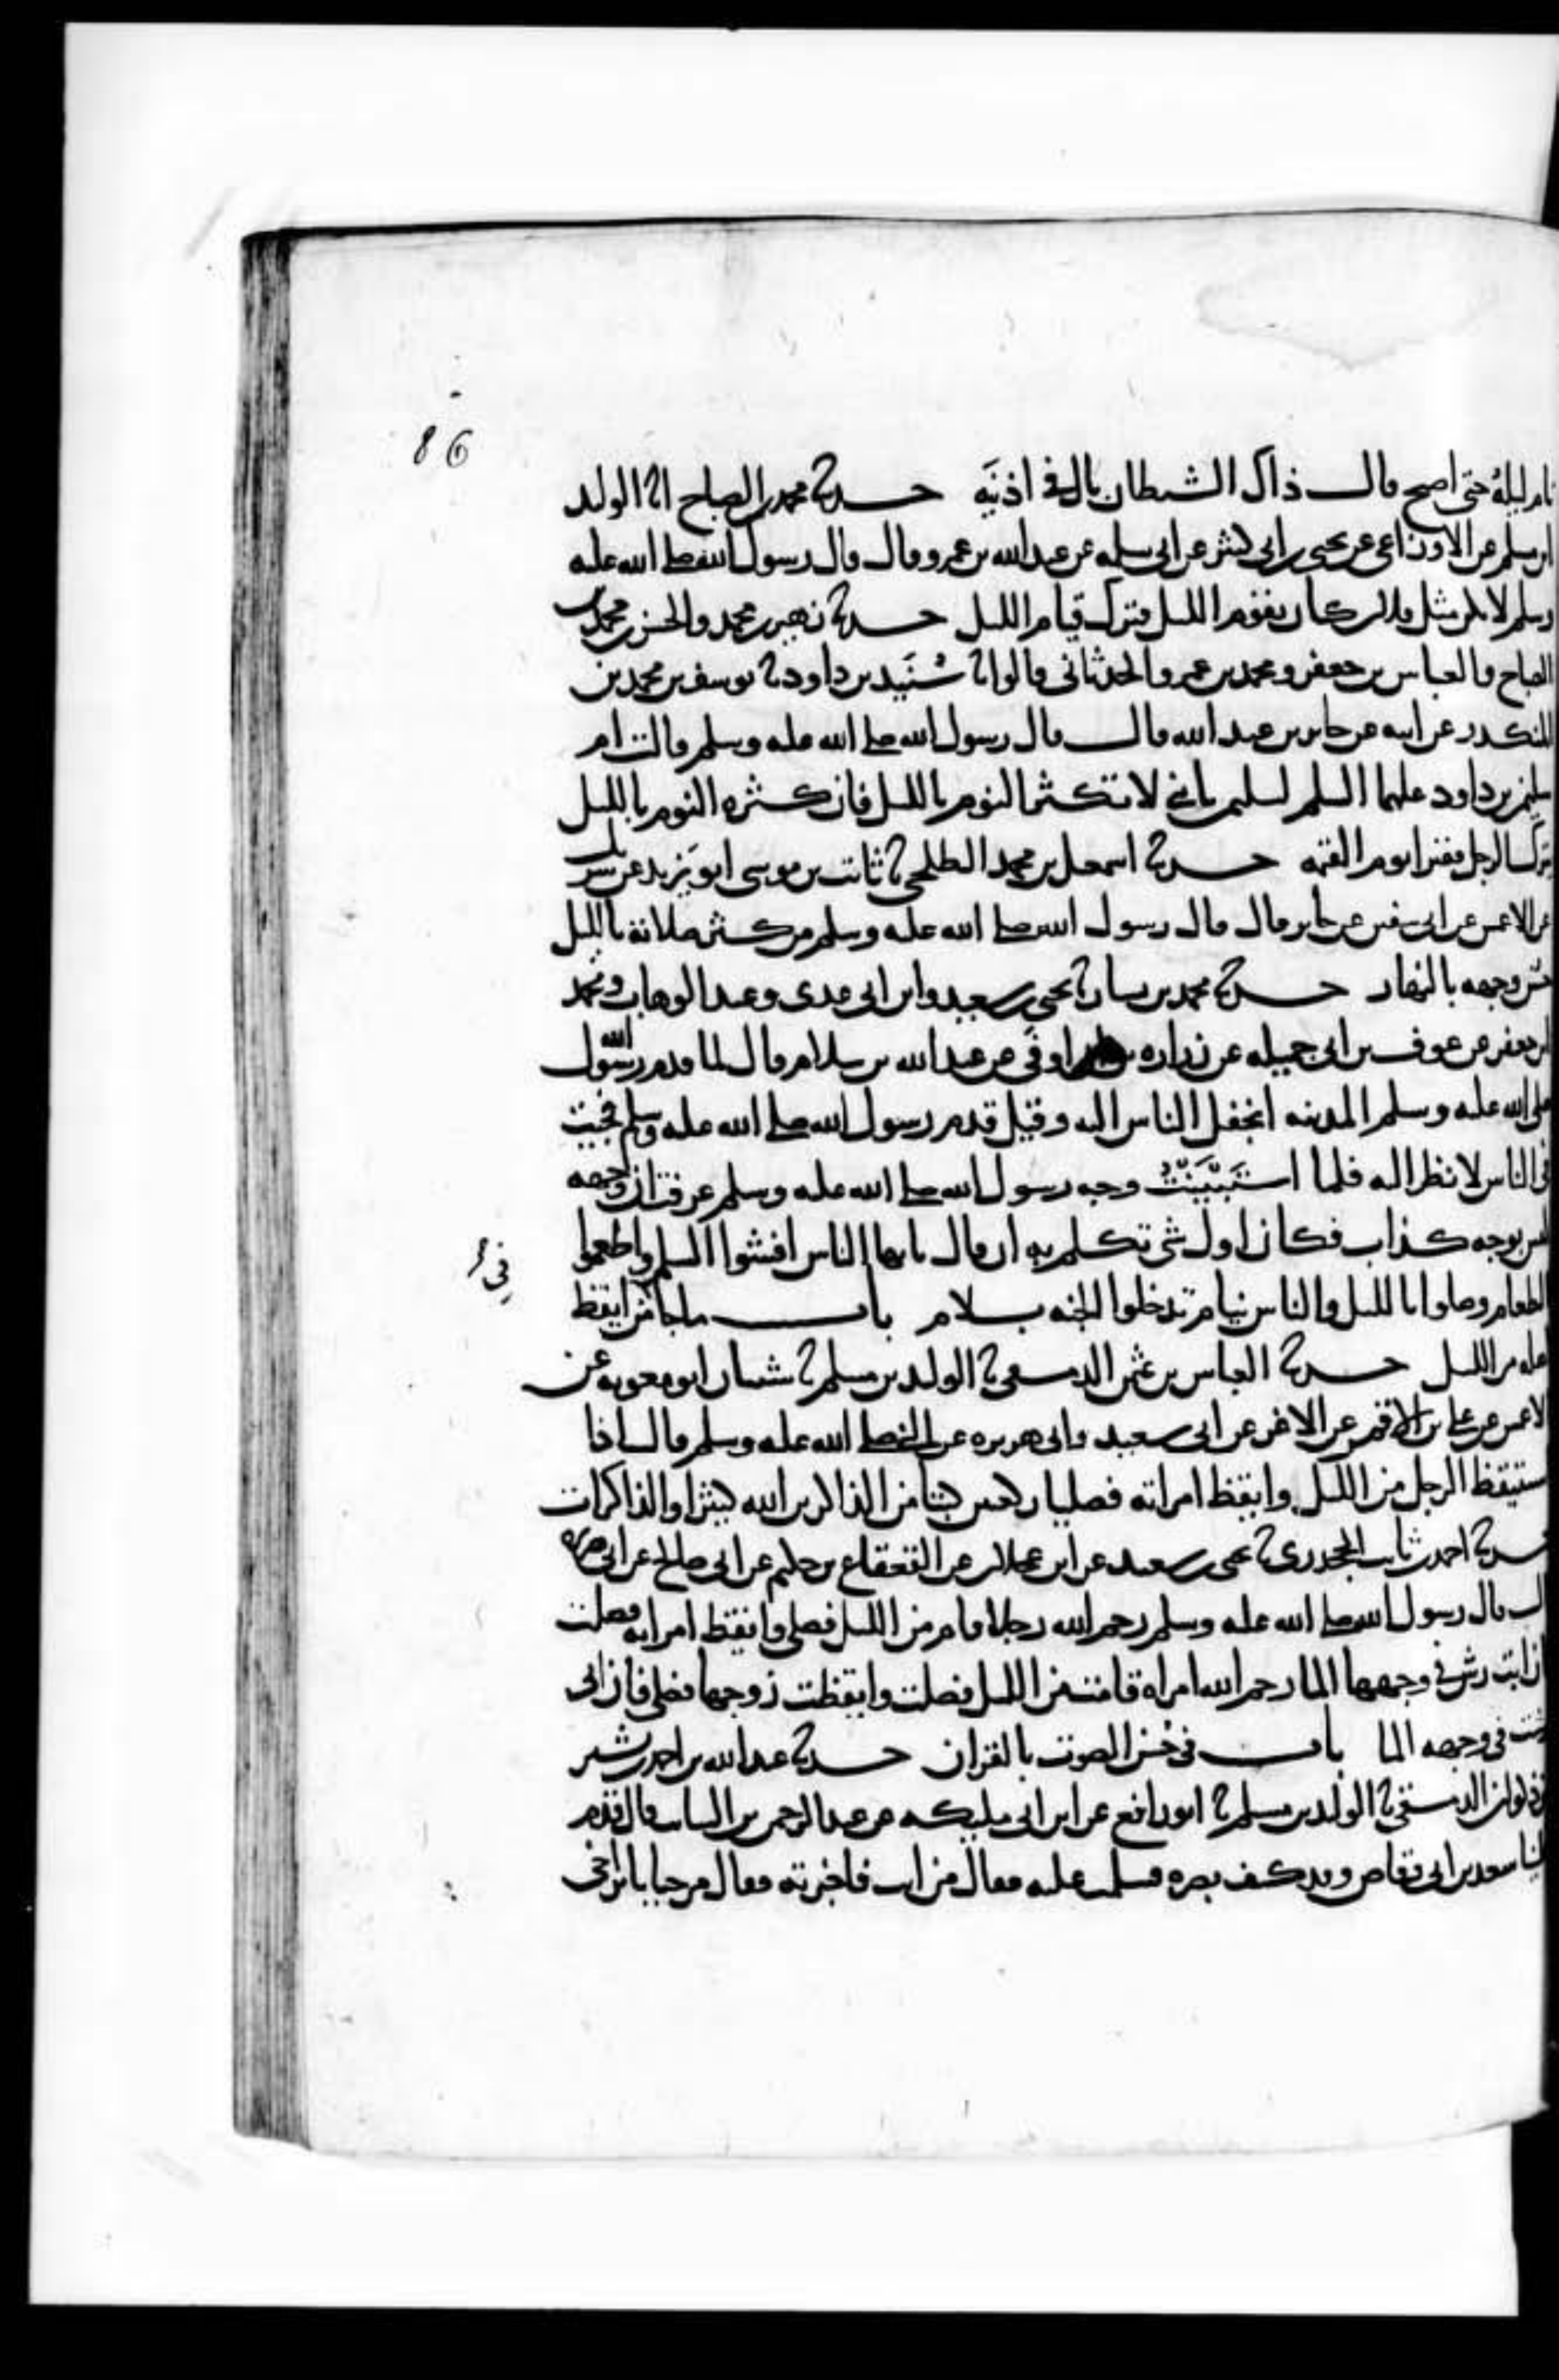 86
نام ليلة حتى اصبح قال ذاك الشيطان بال في اذنيه حدثنا محمد بن الصباح انا الوليد
ابن مسلم عن الاوزاعي عن يحيى بن ابي كثير عن ابي سلمه عن عبد الله بن عمرو قال قال رسول الله صلى الله عليه
وسلم لا تكن مثل فلان كان يقوم الليل فترك قيام الليل حدثنا زهير بن محمد والحسن بن محمد بن
الصباح والعباس بن جعفر ومحمد بن عمرو الحدثاني قالوا نا سُنَيد بن داود نا يوسف بن محمد بن
المنكدر عن ابيه عن جابر بن عبد الله قال قال رسول الله صلى الله عليه وسلم قالت ام
سليمن بن داود عليهما السلم لسليمن يا بني لا تكثر النوم بالليل فان كثره النوم بالليل
تترك الرجل فقيرا يوم القيمه حدثنا اسمعيل بن محمد الطلحي نا ثابت بن موسى ابو يزيد عن شريك
عن الاعمش عن ابي سفين عن جابر قال قال رسول الله صلى الله عليه وسلم من كثر صلاته بالليل
حسن وجهه بالنهار حدثنا محمد بن بشار نا يحيى بن سعيد وابن ابي عدي وعبد الوهاب ومحمد
ابن جعفر عن عوف بن ابي جميله عن زراره بن اوفى عن عبد الله بن سلام قال لما قدم رسول الله
صلى الله عليه وسلم المدينه انجفل الناس اليه وقيل قدم رسول الله صلى الله عليه وسلم فجيت
في الناس لانظر اليه فلما استَبَيَّنَتْ وجه رسول الله صلى الله عليه وسلم عرفت ان وجهه
ليس بوجه كذاب فكان اول شي تكلم به ان قال يا ايها الناس افشوا السلم واطعموا
الطعام وصلوا بالليل والناس نيام تدخلوا الجنه بسلام باب ما جا فمن ايقظ
في
اهله من الليل حدثنا العباس بن عثمن الدمشقي نا الوليد بن مسلم نا شيبان ابو معويه عن
الاعمش عن علي بن الاقمر عن الاغر عن ابي سعيد وابي هريره عن النبي صلى الله عليه وسلم قال اذا
استيقظ الرجل من الليل وايقظ امراته فصليا ركعتين كتبا من الذاكرين الله كثيرا والذاكرات
حدثنا احمد بن ثابت الجحدري نا يحيى بن سعيد عن ابن عجلان عن القعقاع بن حكيم عن ابي صالح عن ابي هريره
قال قال رسول الله صلى الله عليه وسلم رحم الله رجلا قام من الليل فصلى وايقظ امراته فصلت
فان ابت رش في وجهها الما رحم الله امراة قامت من الليل فصلت وايقظت زوجها فصلى فان ابى
رشت في وجهه الما باب في حُسْن الصوت بالقران حدثنا عبد الله بن احمد بن بشير
بن ذكوان الدمشقي نا الوليد بن مسلم نا ابو رافع عن ابن ابي مليكه عن عبد الرحمن بن السايب قال قدم
علينا سعد بن ابي وقاص وقد كف بصره فسلمت عليه فقال من انت فاخبرته فقال مرحبا بابن اخي